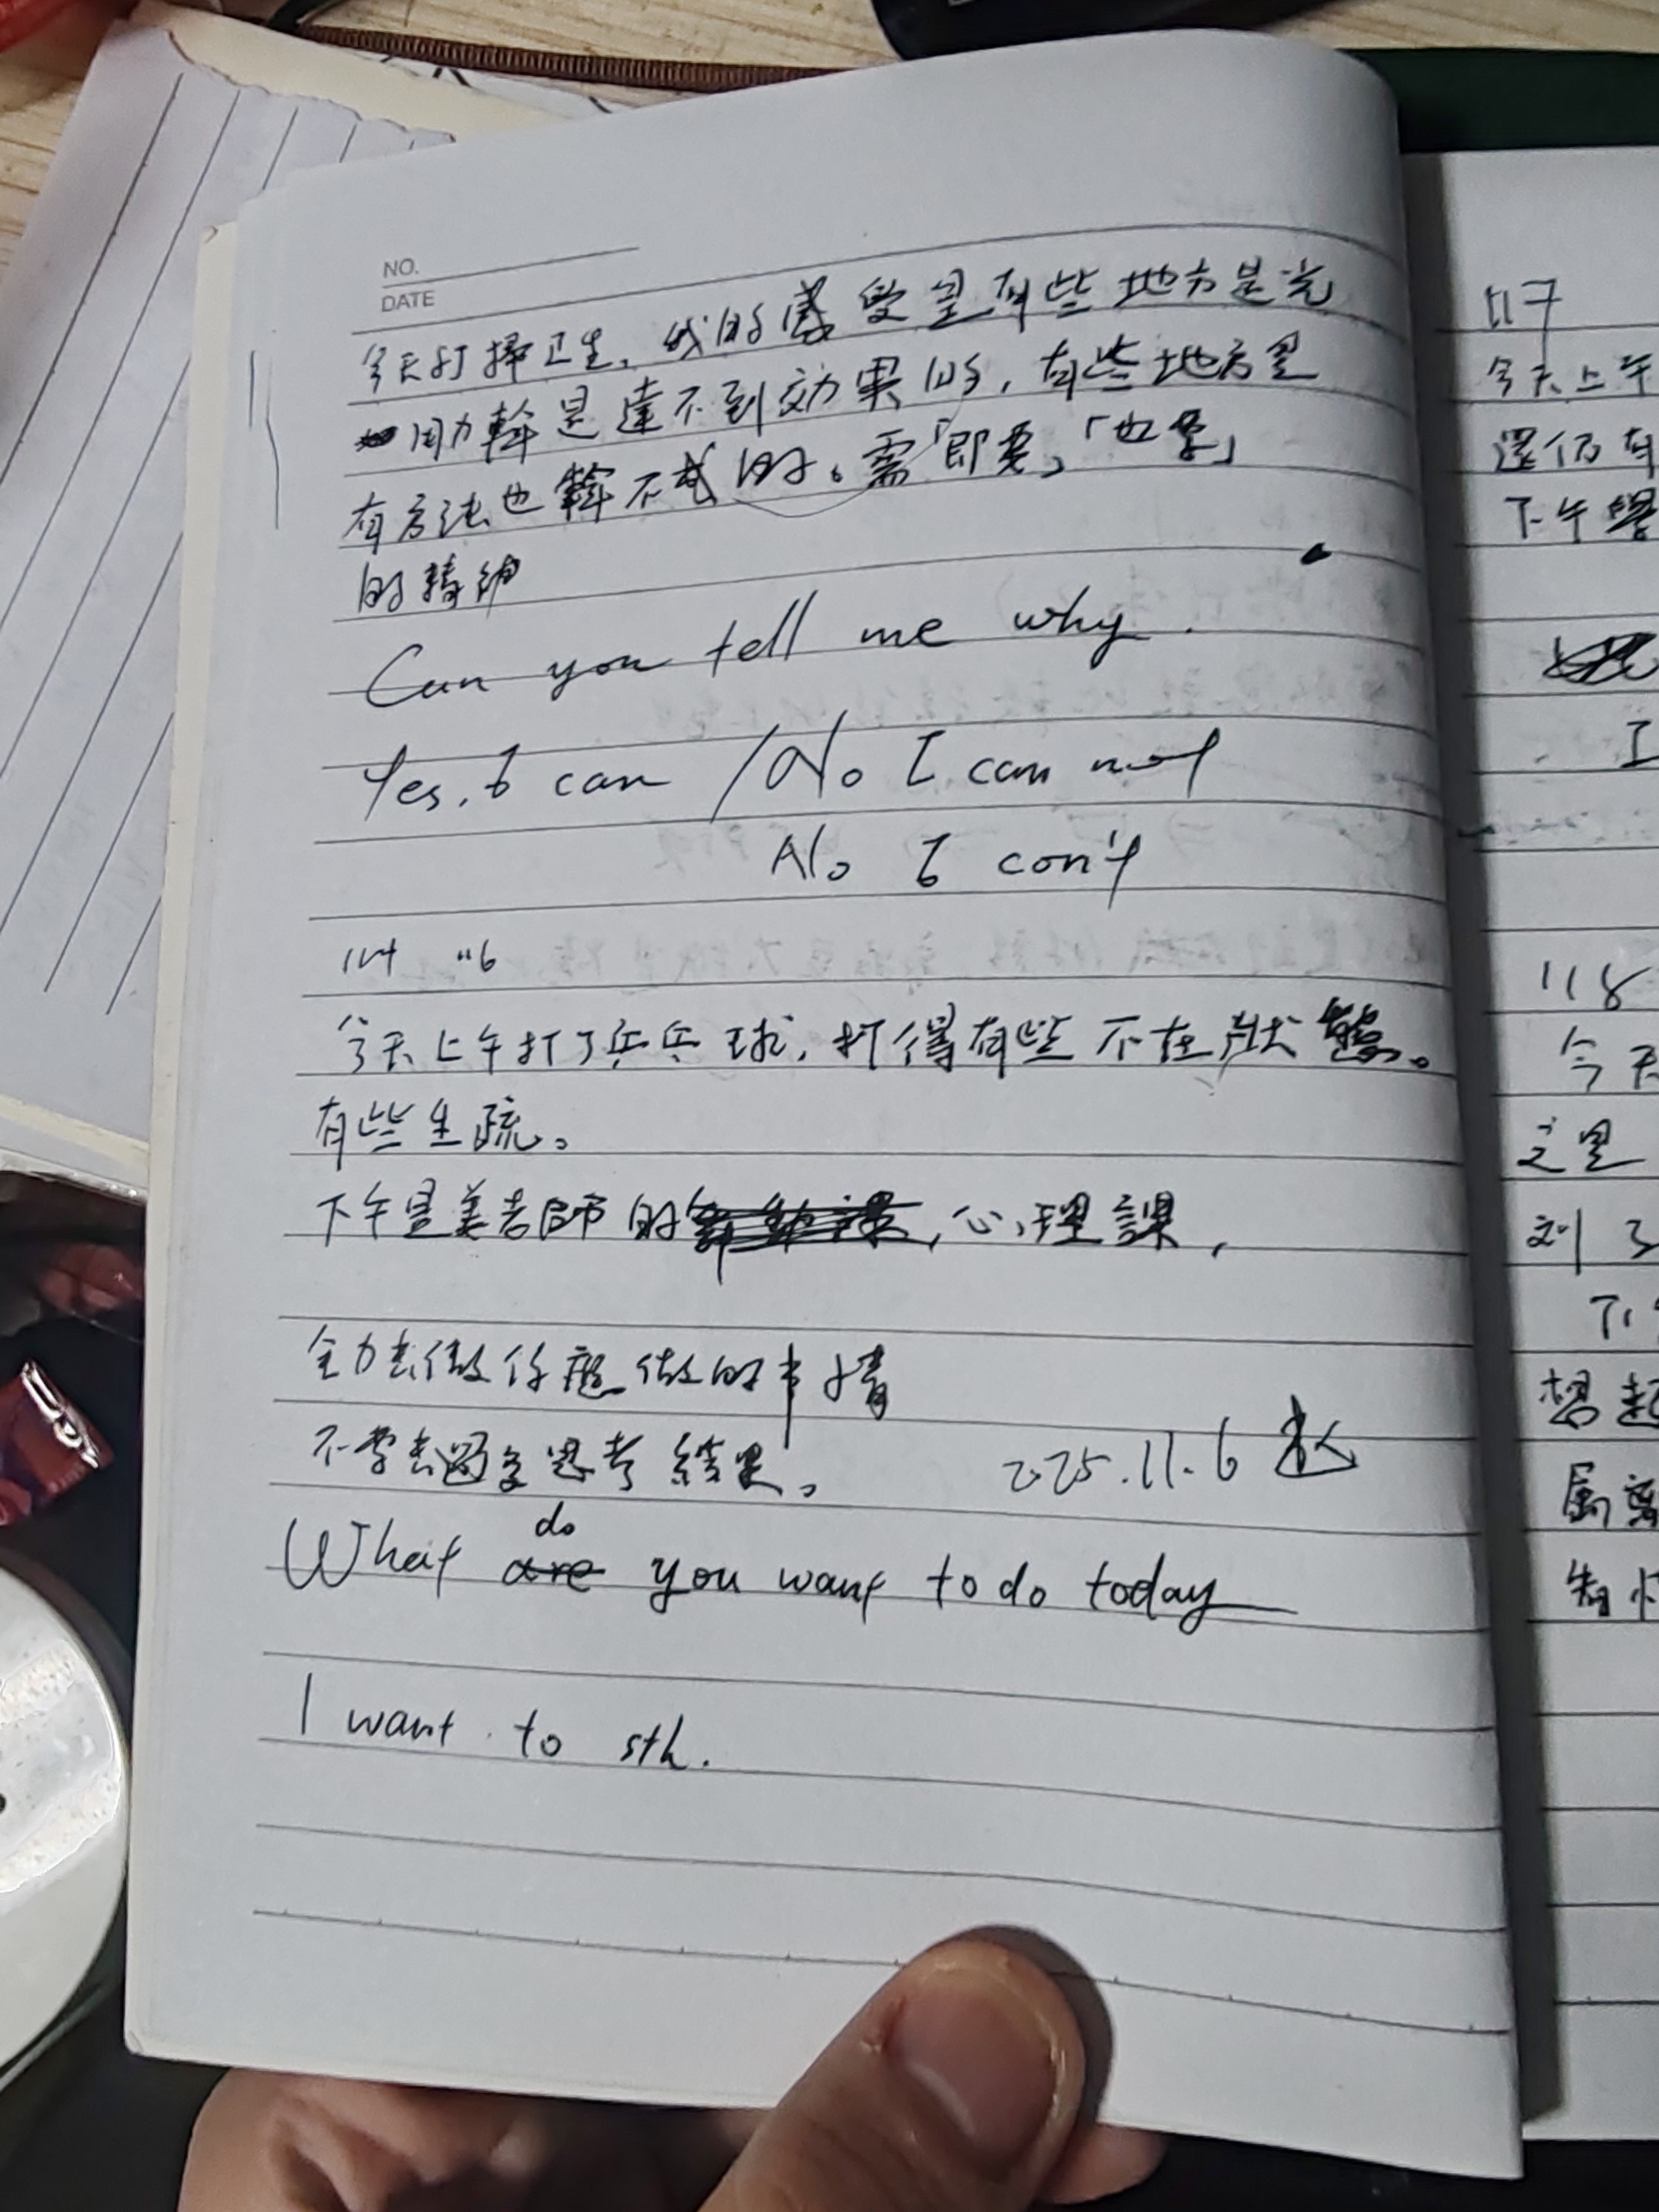 NO.
DATE
今天打掃卫生，我的感受是有些地方是光
用力幹是達不到効果的，有些地方是
有方法也幹不成的。需「即要」「也要」
的精神
Can you tell me why.
Yes, I can / No I can not
No I con't
114 116
今天上午打了乒乓球，打得有些不在狀態。
有些生疏。
下午是姜老師的，心理課，
全力去做你應做的事情
不要去過多思考結果。 2025.11.6
do
What are you want to do today
I want to sth.
117
今天上午
還仍有
下午學
I
118
今天
这是
刘了
下午
想起
知